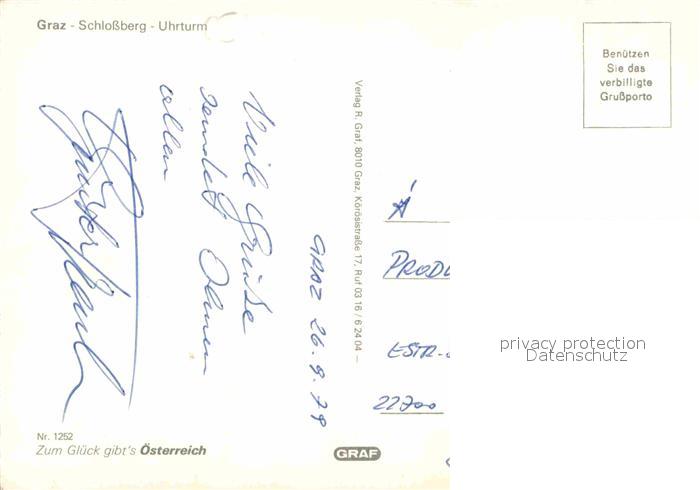 Graz - Schloßberg - Uhrturm
Benützen
Sie das
verbilligte
Grußporto
GRAZ 26.9.79
Viele Grüße
sendet Ihnen
allen
Verlag R. Graf, 8010 Graz, Körösistraße 17, Ruf 03 16 / 6 24 04 –
Á
PROD
ESTR.
22700
privacy protection
Datenschutz
Nr. 1252
Zum Glück gibt's Österreich
GRAF